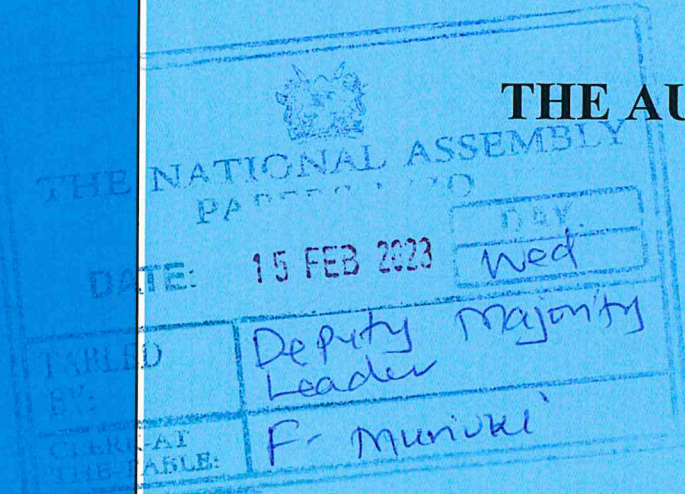 THE AU
THE NATIONAL ASSEMBLY
PAPERS LAID
DATE: 15 FEB 2023
DAY.
Wed
TABLED BY:
Deputy Majority
Leader
CLERK-AT THE-TABLE:
F. Muriuki